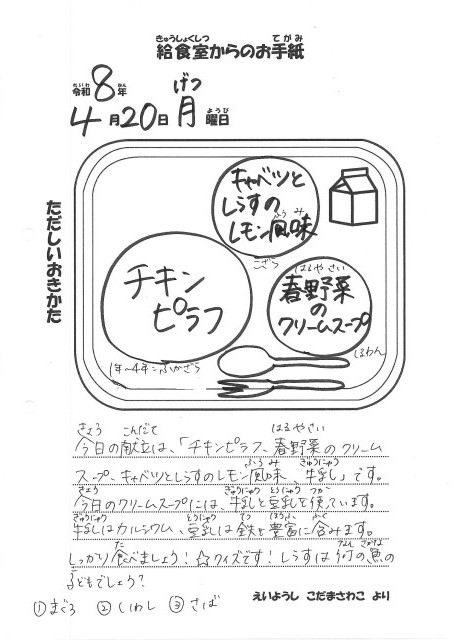 きゅうしょくしつ てがみ
給食室からのお手紙
れいわ ねん
令和8年
げつ ようび
4月20日月曜日
ただしいおきかた
キャベツと
しらすの
ふうみ
レモン風味
こざら
チキン
ピラフ
はるやさい
春野菜
の
クリームスープ
しるわん
1年~4年:ふかざら
きょう こんだて はるやさい
今日の献立は、「チキンピラフ、春野菜のクリーム
ふうみ ぎゅうにゅう
スープ、キャベツとしらすのレモン風味、牛乳」です。
きょう ぎゅうにゅう とうにゅう つか
今日のクリームスープには、牛乳と豆乳を使ています。
ぎゅうにゅう とうにゅう てつ ほうふ ふく
牛乳はカルシウム、豆乳は鉄を豊富に含みます。
た なん さかな
しっかり食べましょう!☆クイズです!しらすは何の魚の
子どもでしょう?
①まぐろ ②いわし ③さば
えいようし こだまさわこ より